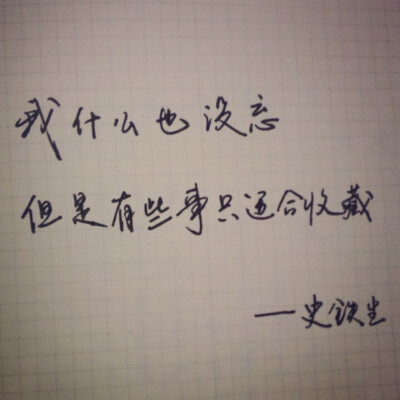 我什么也没忘
但是有些事只适合收藏
——史铁生